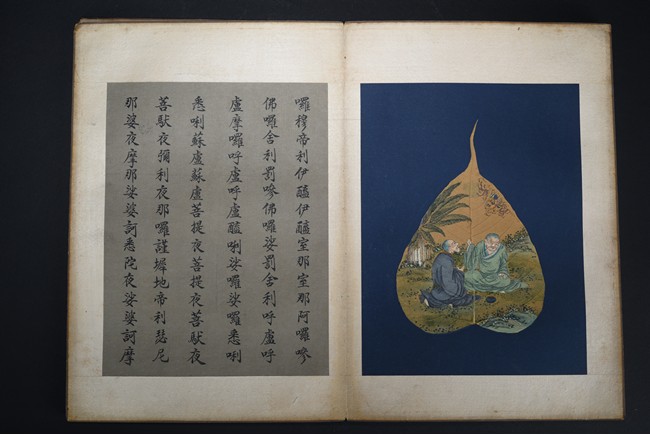 囉穆帝利伊醯伊醯室那室那阿囉嘇
佛囉舍利罰嘇佛囉娑罰舍利呼盧呼
盧摩囉呼盧呼盧醯唎娑囉娑囉悉唎
悉唎蘇盧蘇盧菩提夜菩提夜菩馱夜
菩馱夜彌利夜那囉謹墀地帝利瑟尼
那婆夜摩那娑婆訶悉陀夜娑婆訶摩